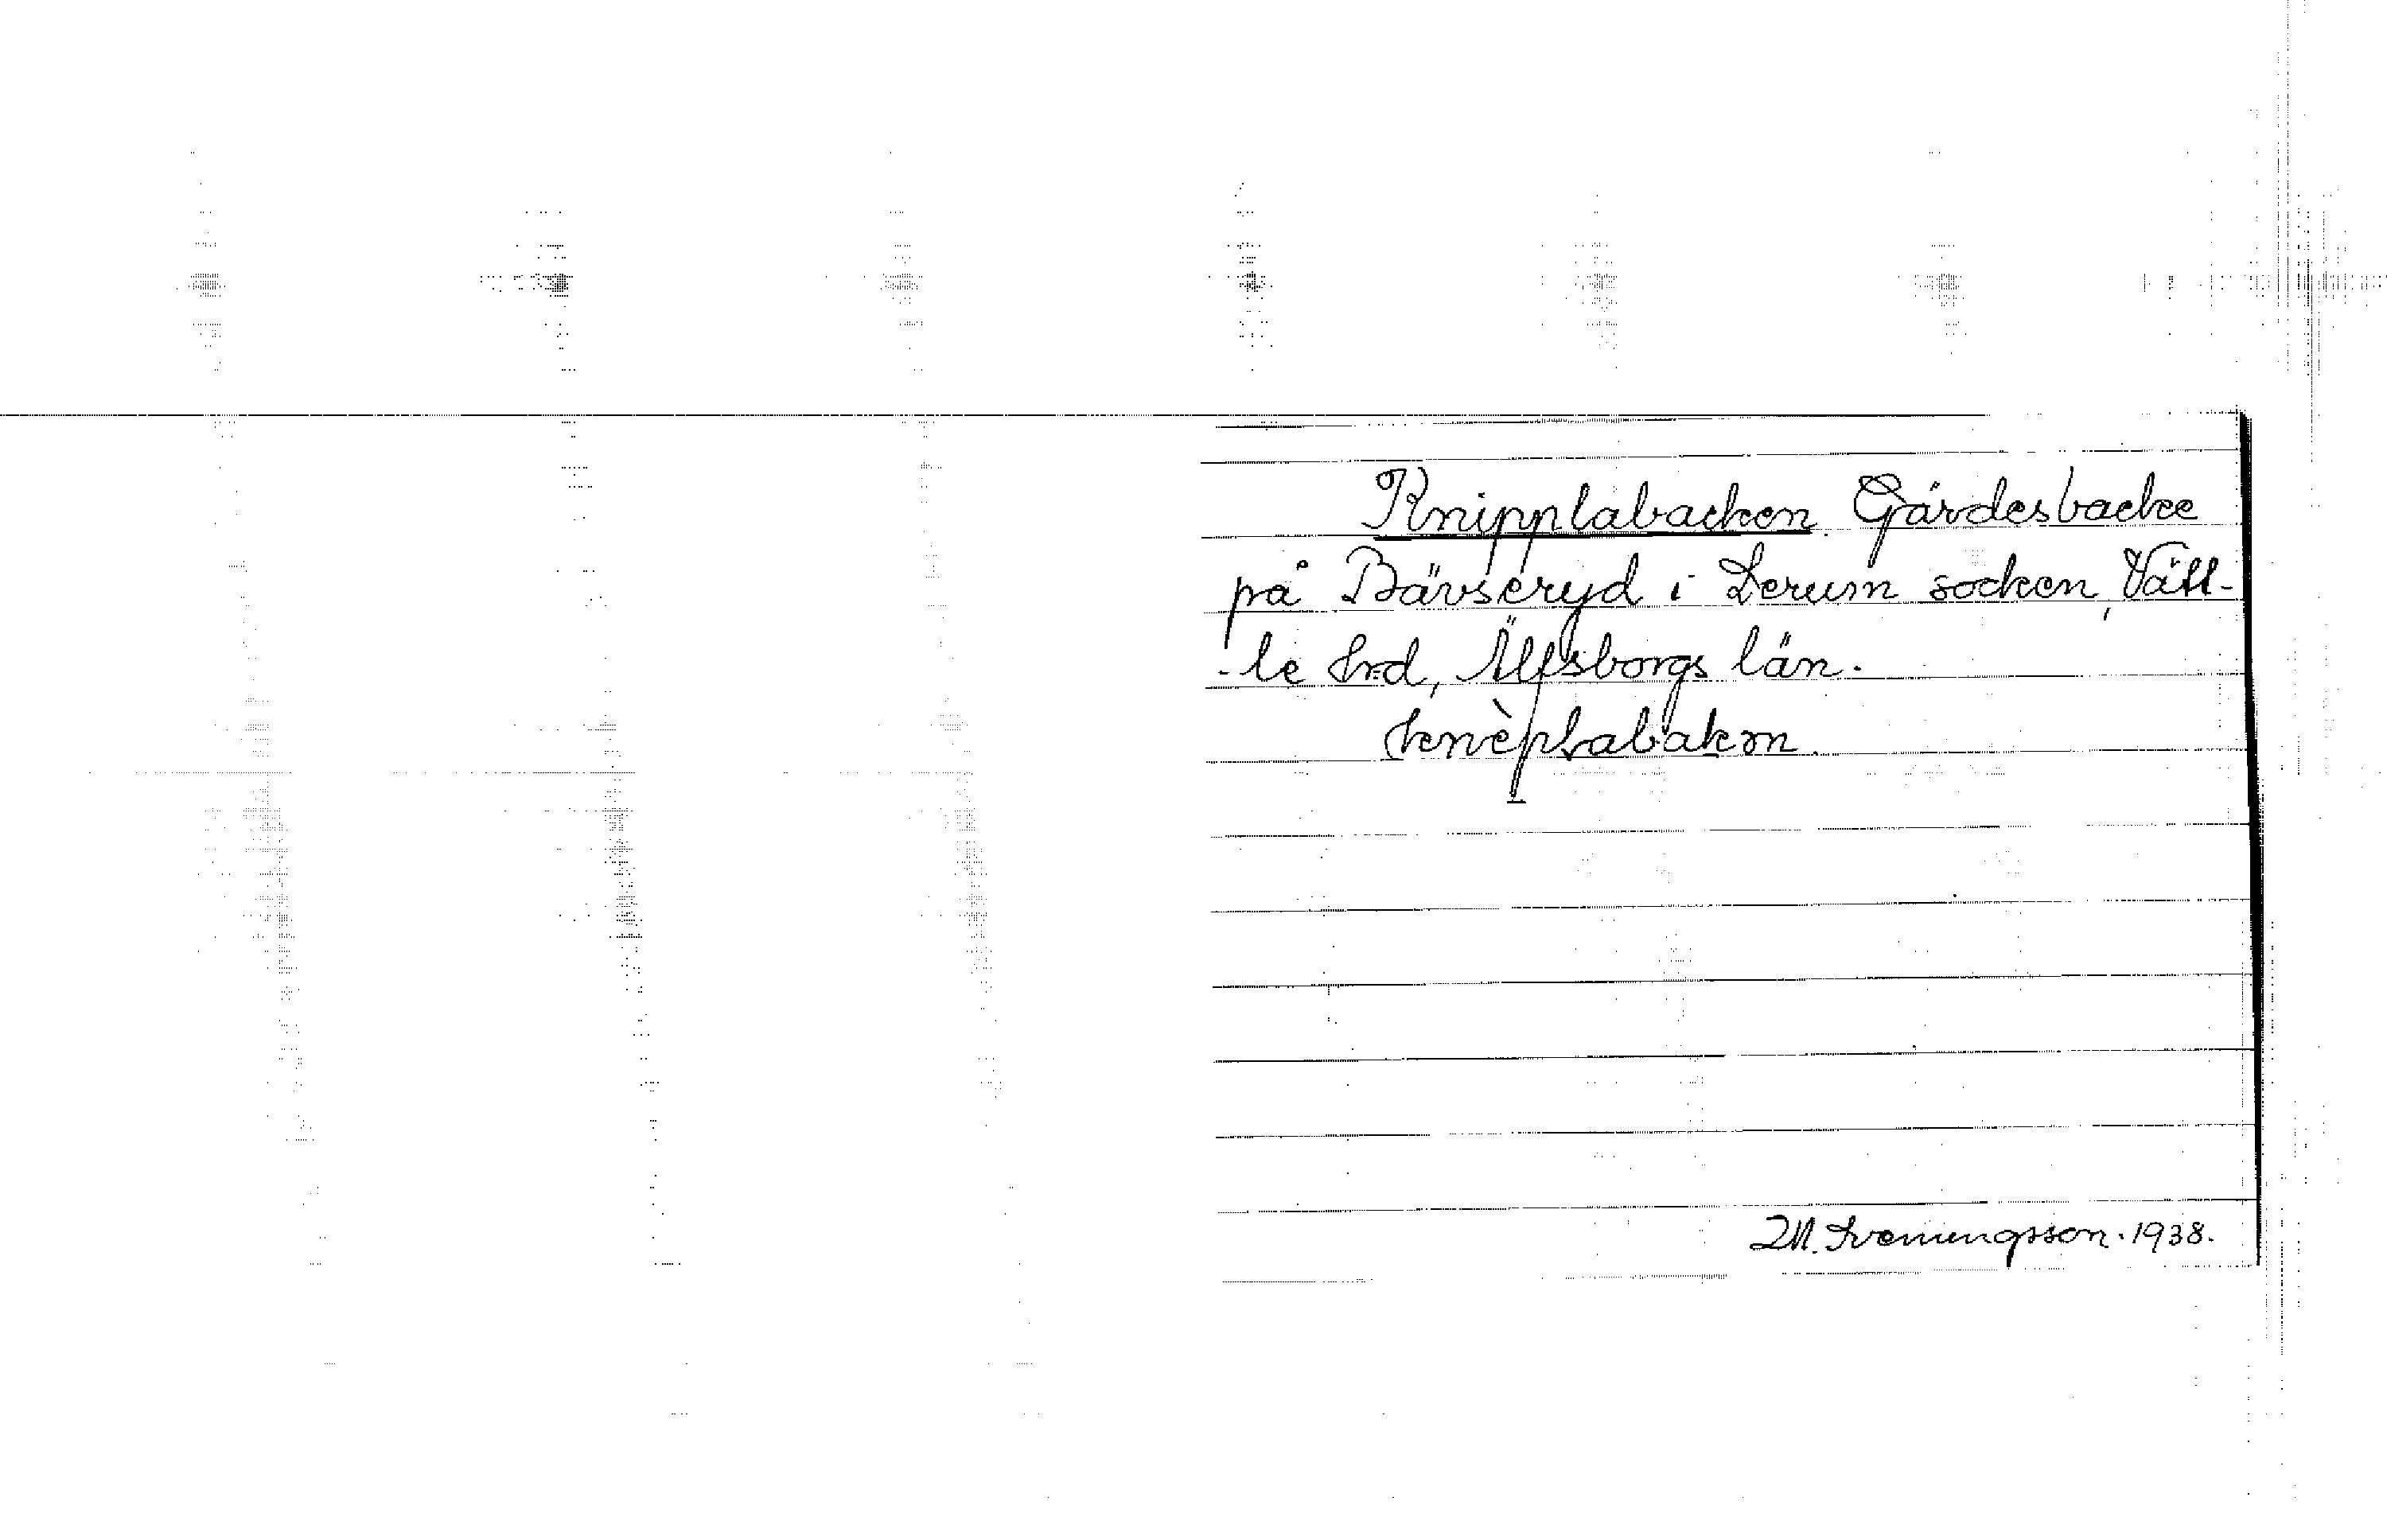 Knipplabacken Gärdesbacke
på Bävseryd i Lerum socken, Vätt-
-le hrd, Älfsborgs län.
knèplabakən
M. Svenungsson. 1938.